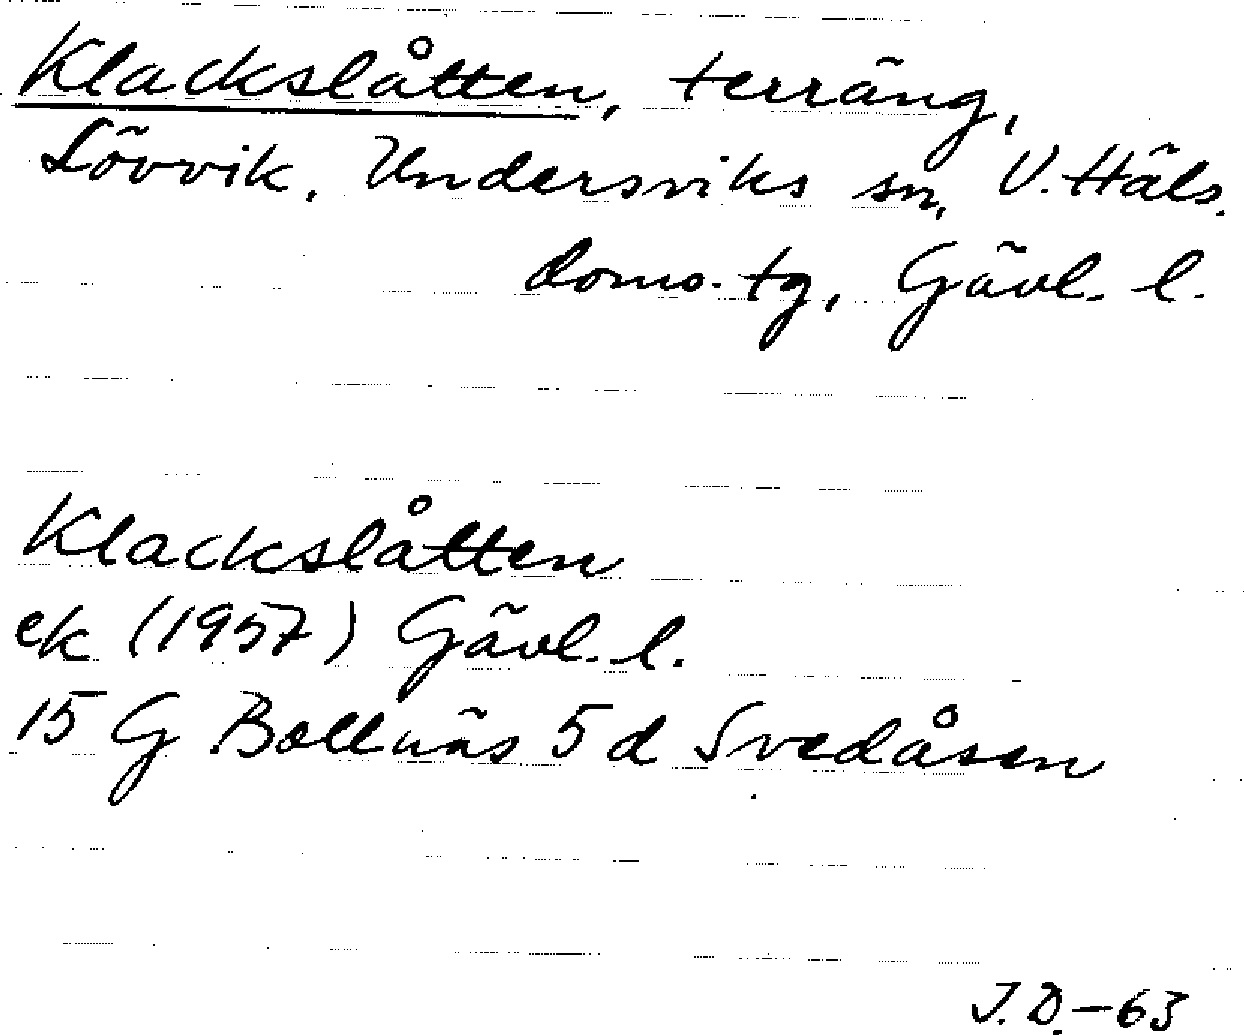 Klackslåtten, terräng,
Lövvik, Undersviks sn, V. Häls.
doms. tg, Gävl. l.
Klackslåtten
ek (1957) Gävl. l.
15 G Bollnäs 5 d Svedåsen
J.D. - 63